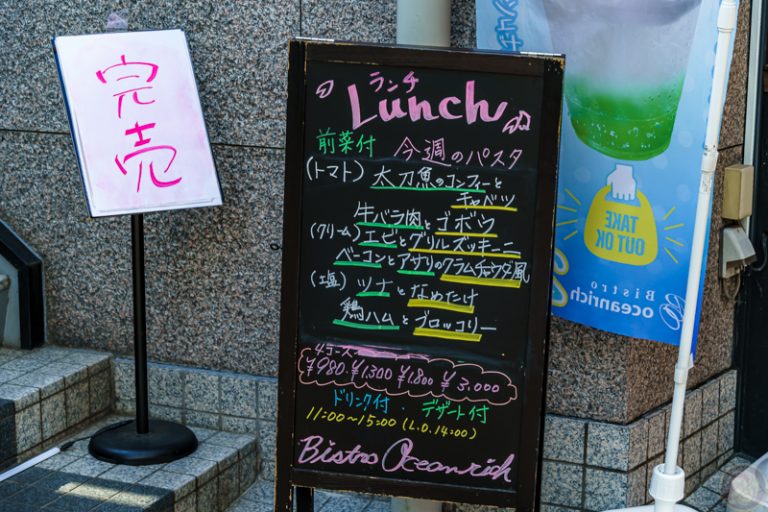 完売
ランチ
Lunch
前菜付 今週のパスタ
(トマト) 太刀魚のコンフィーと
キャベツ
牛バラ肉とゴボウ
(クリーム) エビとグリルズッキーニ
ベーコンとアサリのクラムチャウダー風
(塩) ツナとなめたけ
鶏ハムとブロッコリー
4コース
¥980 ¥1,300 ¥1,800 ¥3,000
ドリンク付・デザート付
11:00~15:00 (L.O.14:00)
Bistro Oceanrich
TAKE
OUT OK
Bistro
oceanrich